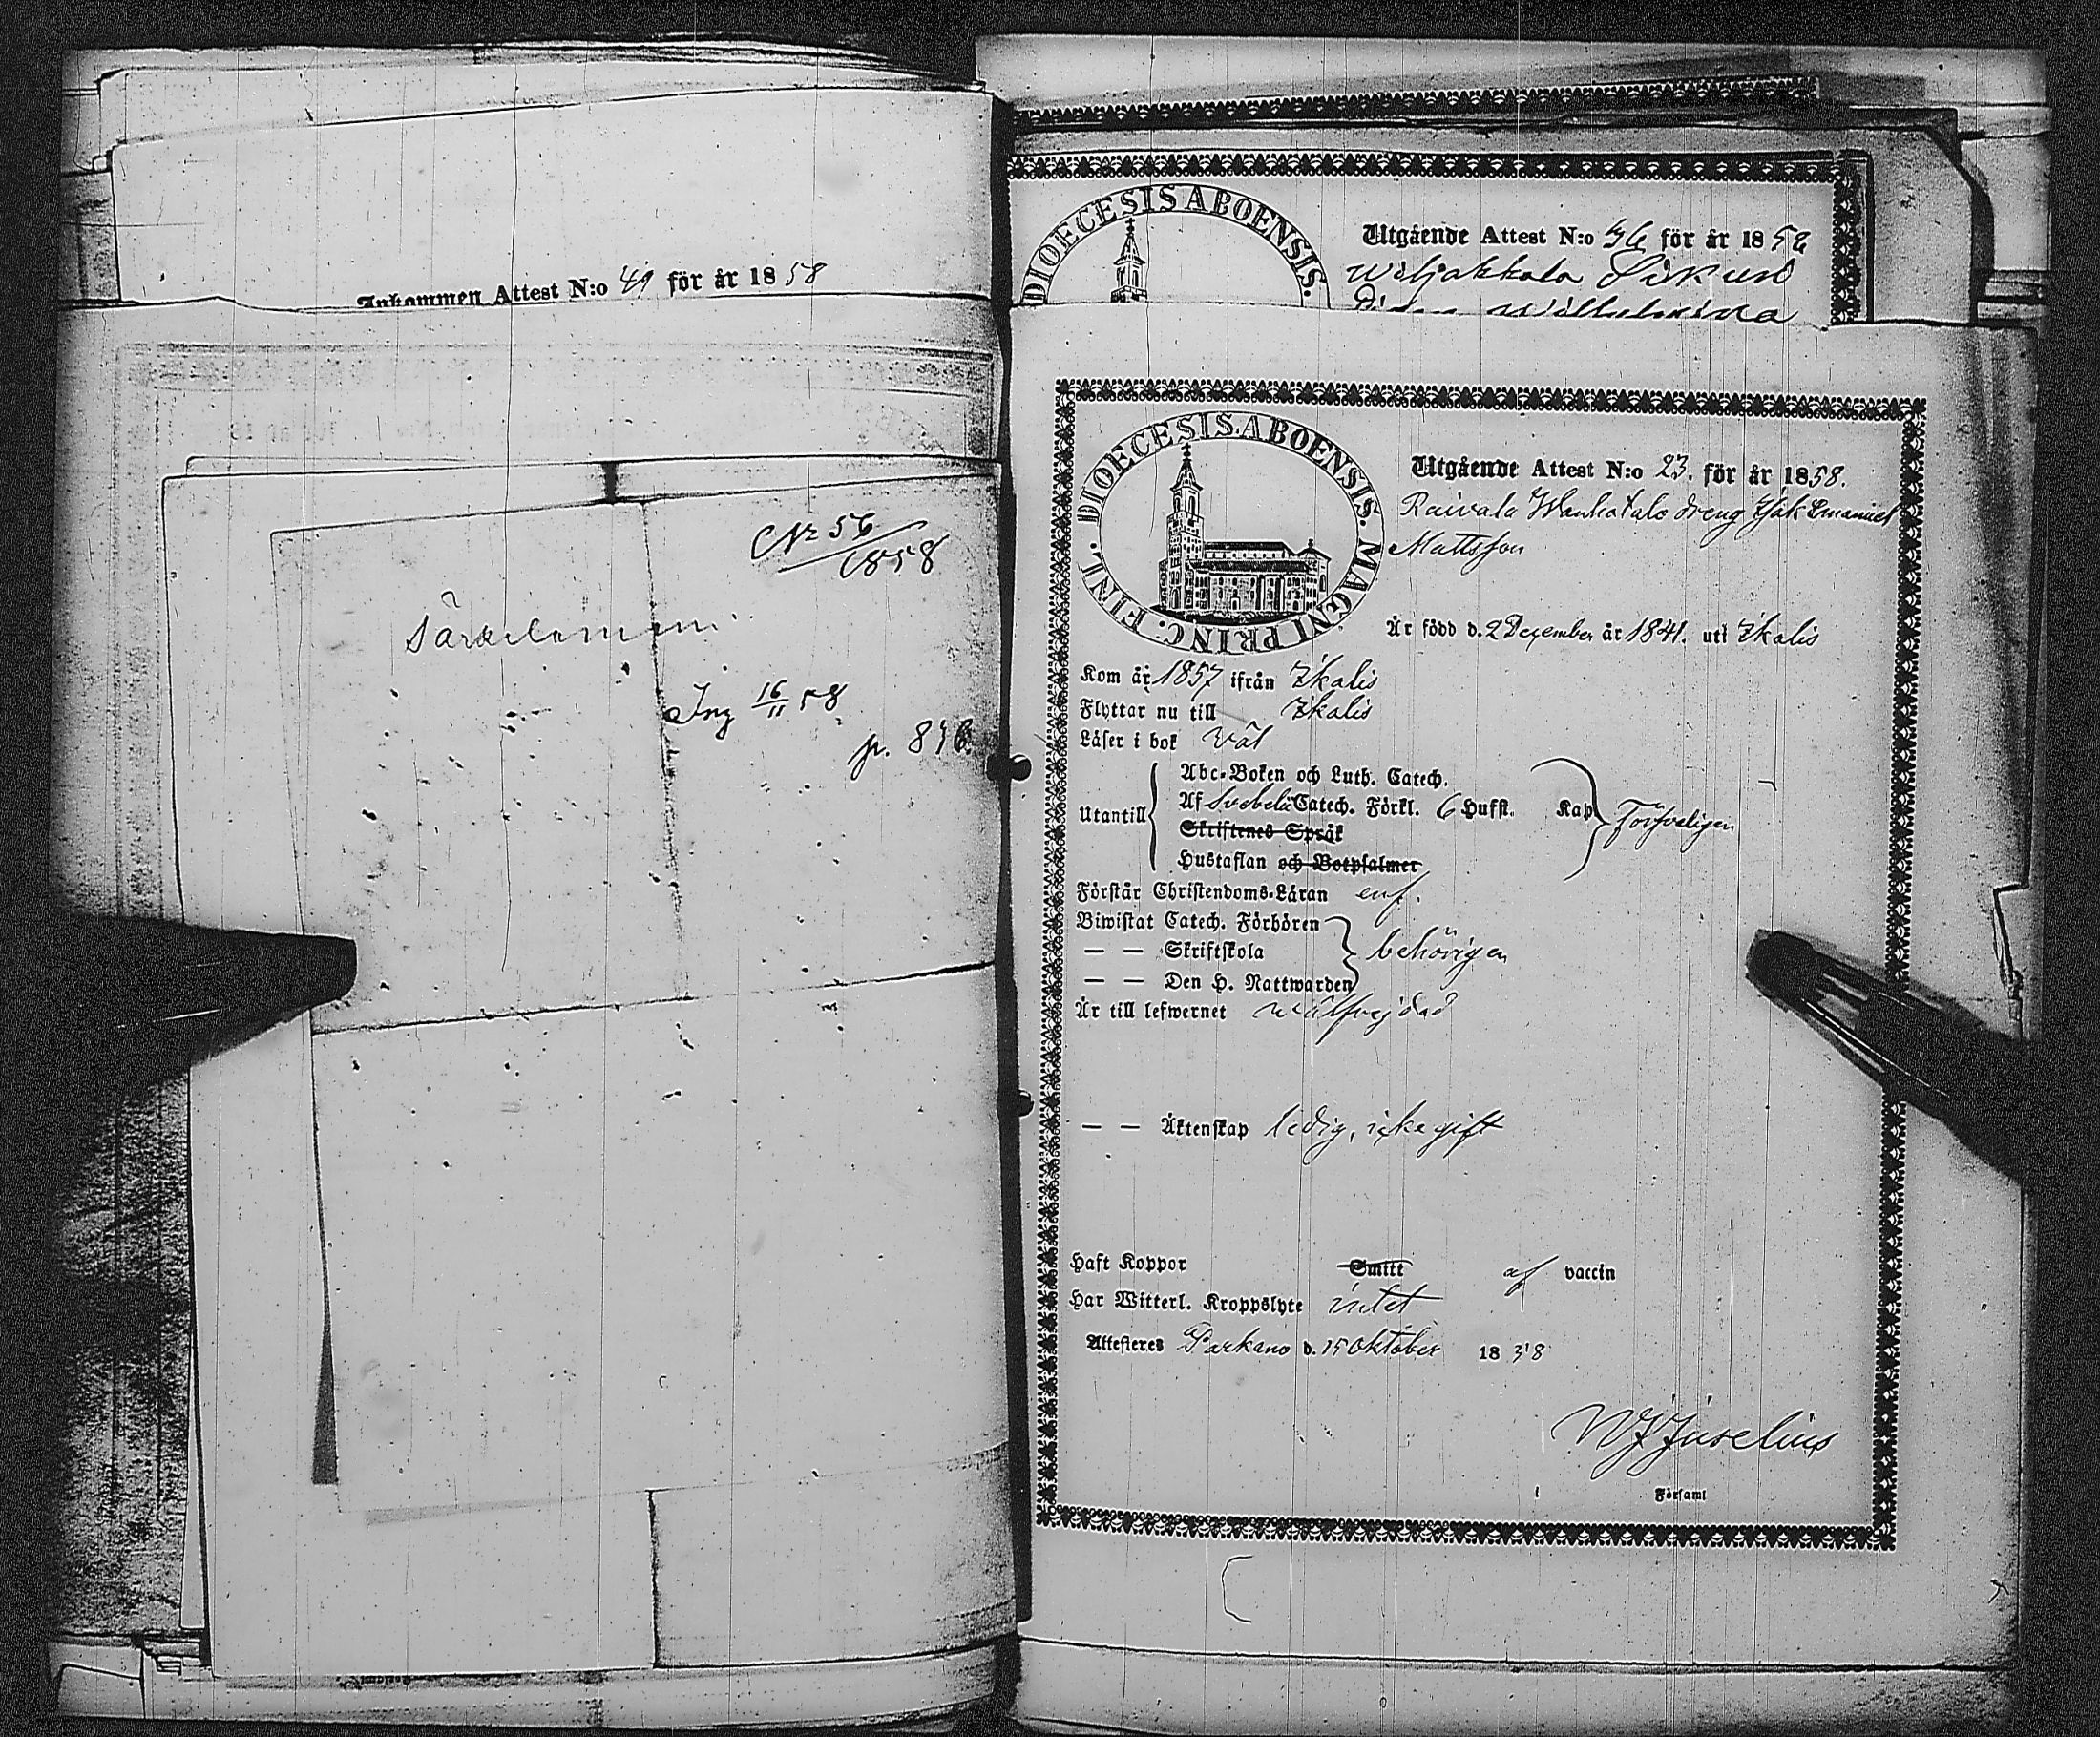 Inkommen Attest N:o 49 för år 1858
No 56
1858
Särkilammi
Ing 16/11 58
p. 846
DIOECESIS ABOENSIS.
Utgående Attest N:o 46 för år 1858
Wilhelmina
DIOECESIS ABOENSIS. MAGNI PRINC. FINL.
Utgående Attest N:o 23. för år 1858.
Raivala Wanhatalo dreng Isak Emanuel
Mattsson
Är född d. 2 December år 1841. uti Ikalis
Kom år 1857 ifrån Ikalis
Flyttar nu till Ikalis
Läser i bok väl
Utantill
Abc-Boken och Luth. Catech.
Af Svebelii Catech. Förkl. 6 Hufst. Kap försvarligen
Skriftenes Språk
Hustaflan och Botpsalmer
Förstår Christendoms-Läran enf.
Biwistat Catech. Förhören
— — Skriftskola behörigen
— — Den H. Nattwarden
Är till lefwernet wälfrejdad
— — Äktenskap ledig, icke gift
Haft Koppor Smitt af vaccin
Har Witterl. Kroppslyte intet
Attesteres Parkano d. 15 Oktober 1858
Juselius
i Församl